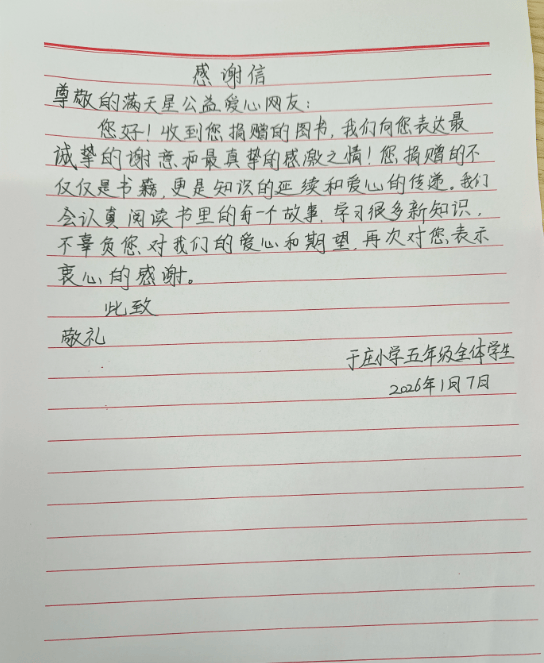 感谢信
尊敬的满天星公益爱心网友:
您好!收到您捐赠的图书,我们向您表达最
诚挚的谢意和最真挚的感激之情!您捐赠的不
仅仅是书籍,更是知识的延续和爱心的传递。我们
会认真阅读书里的每一个故事,学习很多新知识,
不辜负您对我们的爱心和期望,再次对您表示
衷心的感谢。
此致
敬礼
于庄小学五年级全体学生
2026年1月7日